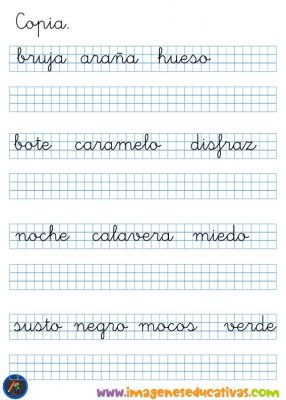 Copia.
bruja araña hueso
bote caramelo disfraz
noche calavera miedo
susto negro mocos verde
www.imageneseducativas.com